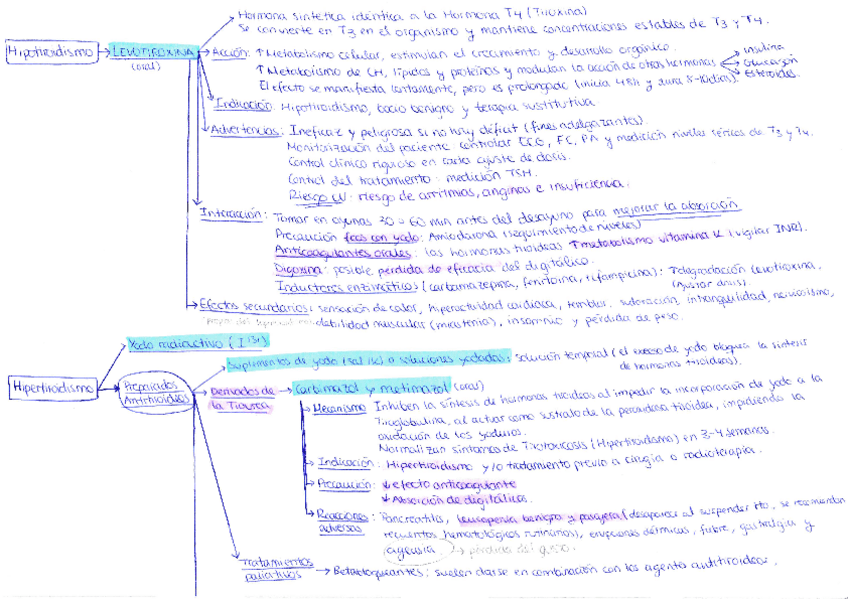 Hormona sintética idéntica a la Hormona T4 (Tiroxina)
Se convierte en T3 en el organismo y mantiene concentraciones estables de T3 y T4.
Hipotiroidismo
LEVOTIROXINA
(oral)
Acción: ↑ Metabolismo celular, estimulan el crecimiento y desarrollo orgánico.
↑ Metabolismo de CH, lípidos y proteínas y modulan la acción de otras hormonas
Insulina
Glucagón
Esteroides.
El efecto se manifiesta lentamente, pero es prolongado (inicia 48h y dura 8-10 días).
Indicación: Hipotiroidismo, bocio benigno y terapia sustitutiva
Advertencias: Ineficaz y peligrosa si no hay déficit (fines adelgazantes).
Monitorización del paciente: controlar ECG, FC, PA y medición niveles séricos de T3 y T4.
Control clínico riguroso en cada ajuste de dosis.
Control del tratamiento: medición TSH.
Riesgo CV: riesgo de arritmias, anginas e insuficiencia.
Interacción: Tomar en ayunas 30 o 60 min antes del desayuno para mejorar la absorción
Precaución fcos con yodo: Amiodarona (seguimiento de niveles)
Anticoagulantes orales: las hormonas tiroideas ↑ metabolismo vitamina K (vigilar INR).
Digoxina: posible perdida de eficacia del digitálico.
Inductores enzimáticos (carbamazepina, fenitoína, rifampicina): ↑ degradación levotiroxina.
(ajustar dosis).
Efectos secundarios: sensación de calor, hiperactividad cardiaca, temblor, sudoración, intranquilidad, nerviosismo,
debilidad muscular (miastenia), insomnio y pérdida de peso.
Yodo radiactivo (I131)
Suplementos de yodo (sal) o soluciones yodadas: solución temporal (el exceso de yodo bloquea la síntesis
de hormonas tiroideas).
Hipertiroidismo
Preparados
Antitiroideos
Derivados de
la Tiourea
Carbimazol y metimazol (oral)
Mecanismo Inhiben la síntesis de hormonas tiroideas al impedir la incorporación de yodo a la
Tiroglobulina, al actuar como sustrato de la peroxidasa tiroidea, impidiendo la
oxidación de los yoduros.
Normalizan síntomas de Tirotoxicosis (Hipertiroidismo) en 3-4 semanas.
Indicación: Hipertiroidismo y/o tratamiento previo a cirugía o radioterapia.
Precaución: ↓ efecto anticoagulante
↓ Absorción de digitálicos.
Reacciones
adversas: Pancreatitis, leucopenia benigna y pasajera (desaparece al suspender tto, se recomiendan
recuentos hematológicos rutinarios), erupciones dérmicas, fiebre, gastralgia y
ageusia → pérdida del gusto.
Tratamientos
paliativos → Betabloqueantes: suelen darse en combinación con los agentes antitiroideos.